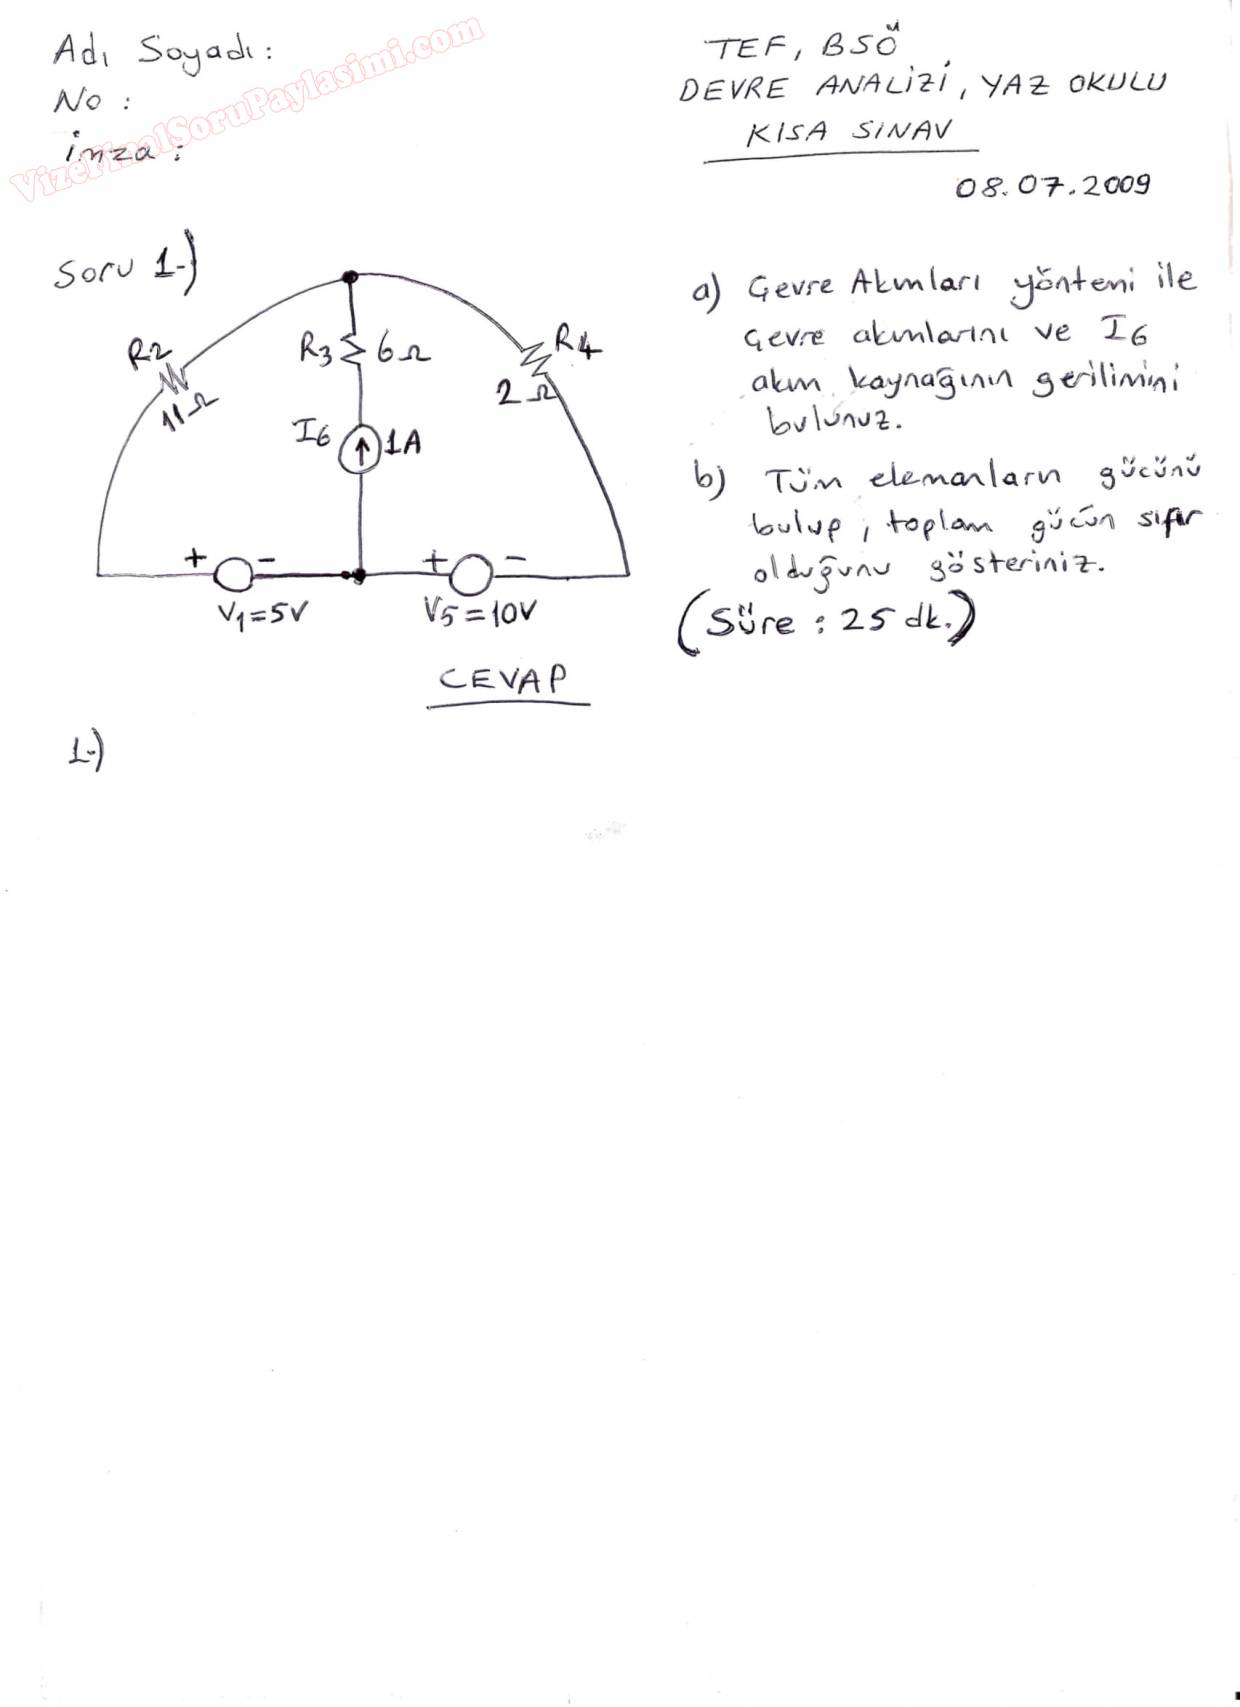 Adı Soyadı:
No :
İmza :
VizeFinalSoruPaylasimi.com
TEF, BSÖ
DEVRE ANALİZİ, YAZ OKULU
KISA SINAV
08.07.2009
Soru 1-)
R2
11Ω
R3 6Ω
R4
2Ω
I6 1A
+ -
V1=5V
+ -
V5=10V
a) Çevre Akımları yöntemi ile
çevre akımlarını ve I6
akım kaynağının gerilimini
bulunuz.
b) Tüm elemanların gücünü
bulup, toplam gücün sıfır
olduğunu gösteriniz.
(Süre : 25 dk.)
CEVAP
1-)